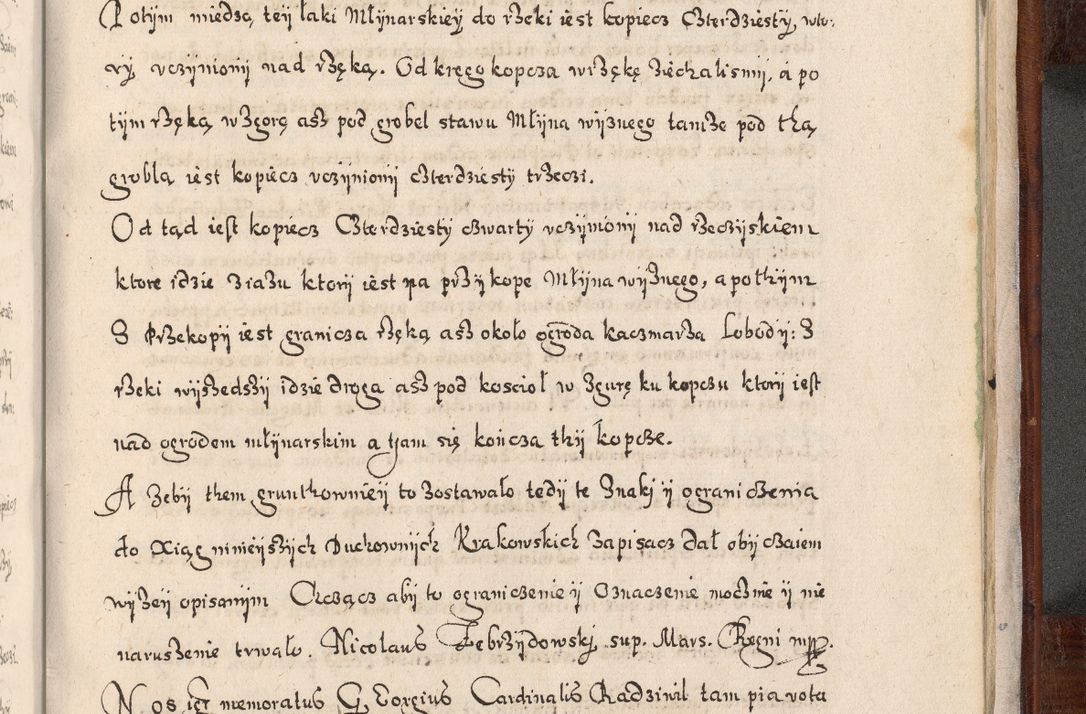 Potÿm miedzą teÿ łąki Młÿnarskieÿ do rzeki iest kopiecz Czterdziestÿ, wto:
rÿ vczÿnionÿ nad rzęką. Od krego kopcza w rzękę ziechalismÿ, á po
tÿm rzęką w zgorę asz pod grobel stawu Młÿna wÿznego tamże pod thą
groblą iest kopiecz vczÿnionÿ czterdziestÿ trzeczi.
Od tąd iest kopiecz Czterdziestÿ czwartÿ vczÿnionÿ nad rzeczÿskiem
ktore idzie z iazu ktorÿ iest na przÿkope Młÿna wÿznego, a pothÿm
Z Przekopÿ iest granicza rzęką asz około ogroda kaczmarza Lobodÿ: Z
rzeki wÿszedszÿ idzie droga asz pod koscioł w zgurę ku kopczu ktorÿ iest
nad ogrodem młÿnarskim a tam się kończa thÿ kopcze.
A zebÿ them grunthownieÿ to zostawało tedÿ te znaki ÿ ograniczenia
do Xiąg ninieÿszÿch Duchownÿch Krakowskich zapisacz dał obÿczaiem
wÿzeÿ opisanÿm Chcącz abÿ to ograniczenie ÿ oznaczenie mocznie ÿ nie
naruszenie trwało. Nicolaus Zebrzÿdowskj sup. Mars. Regni mpp.
Nos igr memoratus Georgius Cardinalis Radziwil tam pia vota